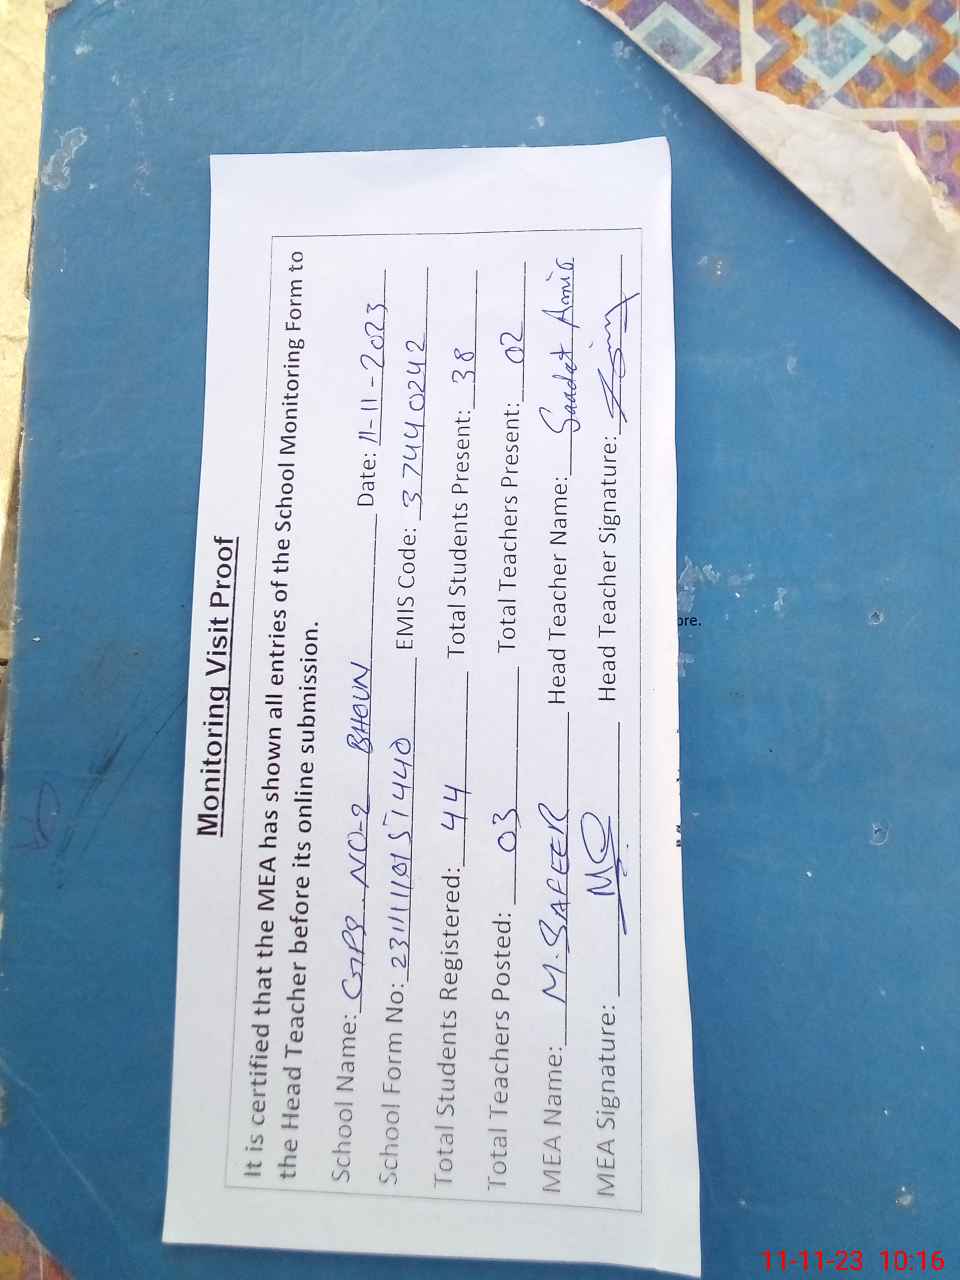 Monitoring Visit Proof
It is certified that the MEA has shown all entries of the School Monitoring Form to
the Head Teacher before its online submission.
School Name: GPS NO-2 BHOUN Date: 11-11-2023
School Form No: EMIS Code: 37440242
Total Students Registered: 44 Total Students Present: 38
Total Teachers Posted: 03 Total Teachers Present: 02
MEA Name: M. SAFEER Head Teacher Name: Saadat Amir
MEA Signature: Head Teacher Signature:
ore.
11-11-23 10:16